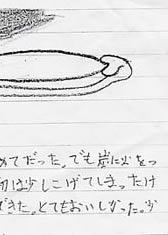 めてだった。でも炭に火をつ
初は少しこげてしまったけ
できた。とてもおいしかった。少